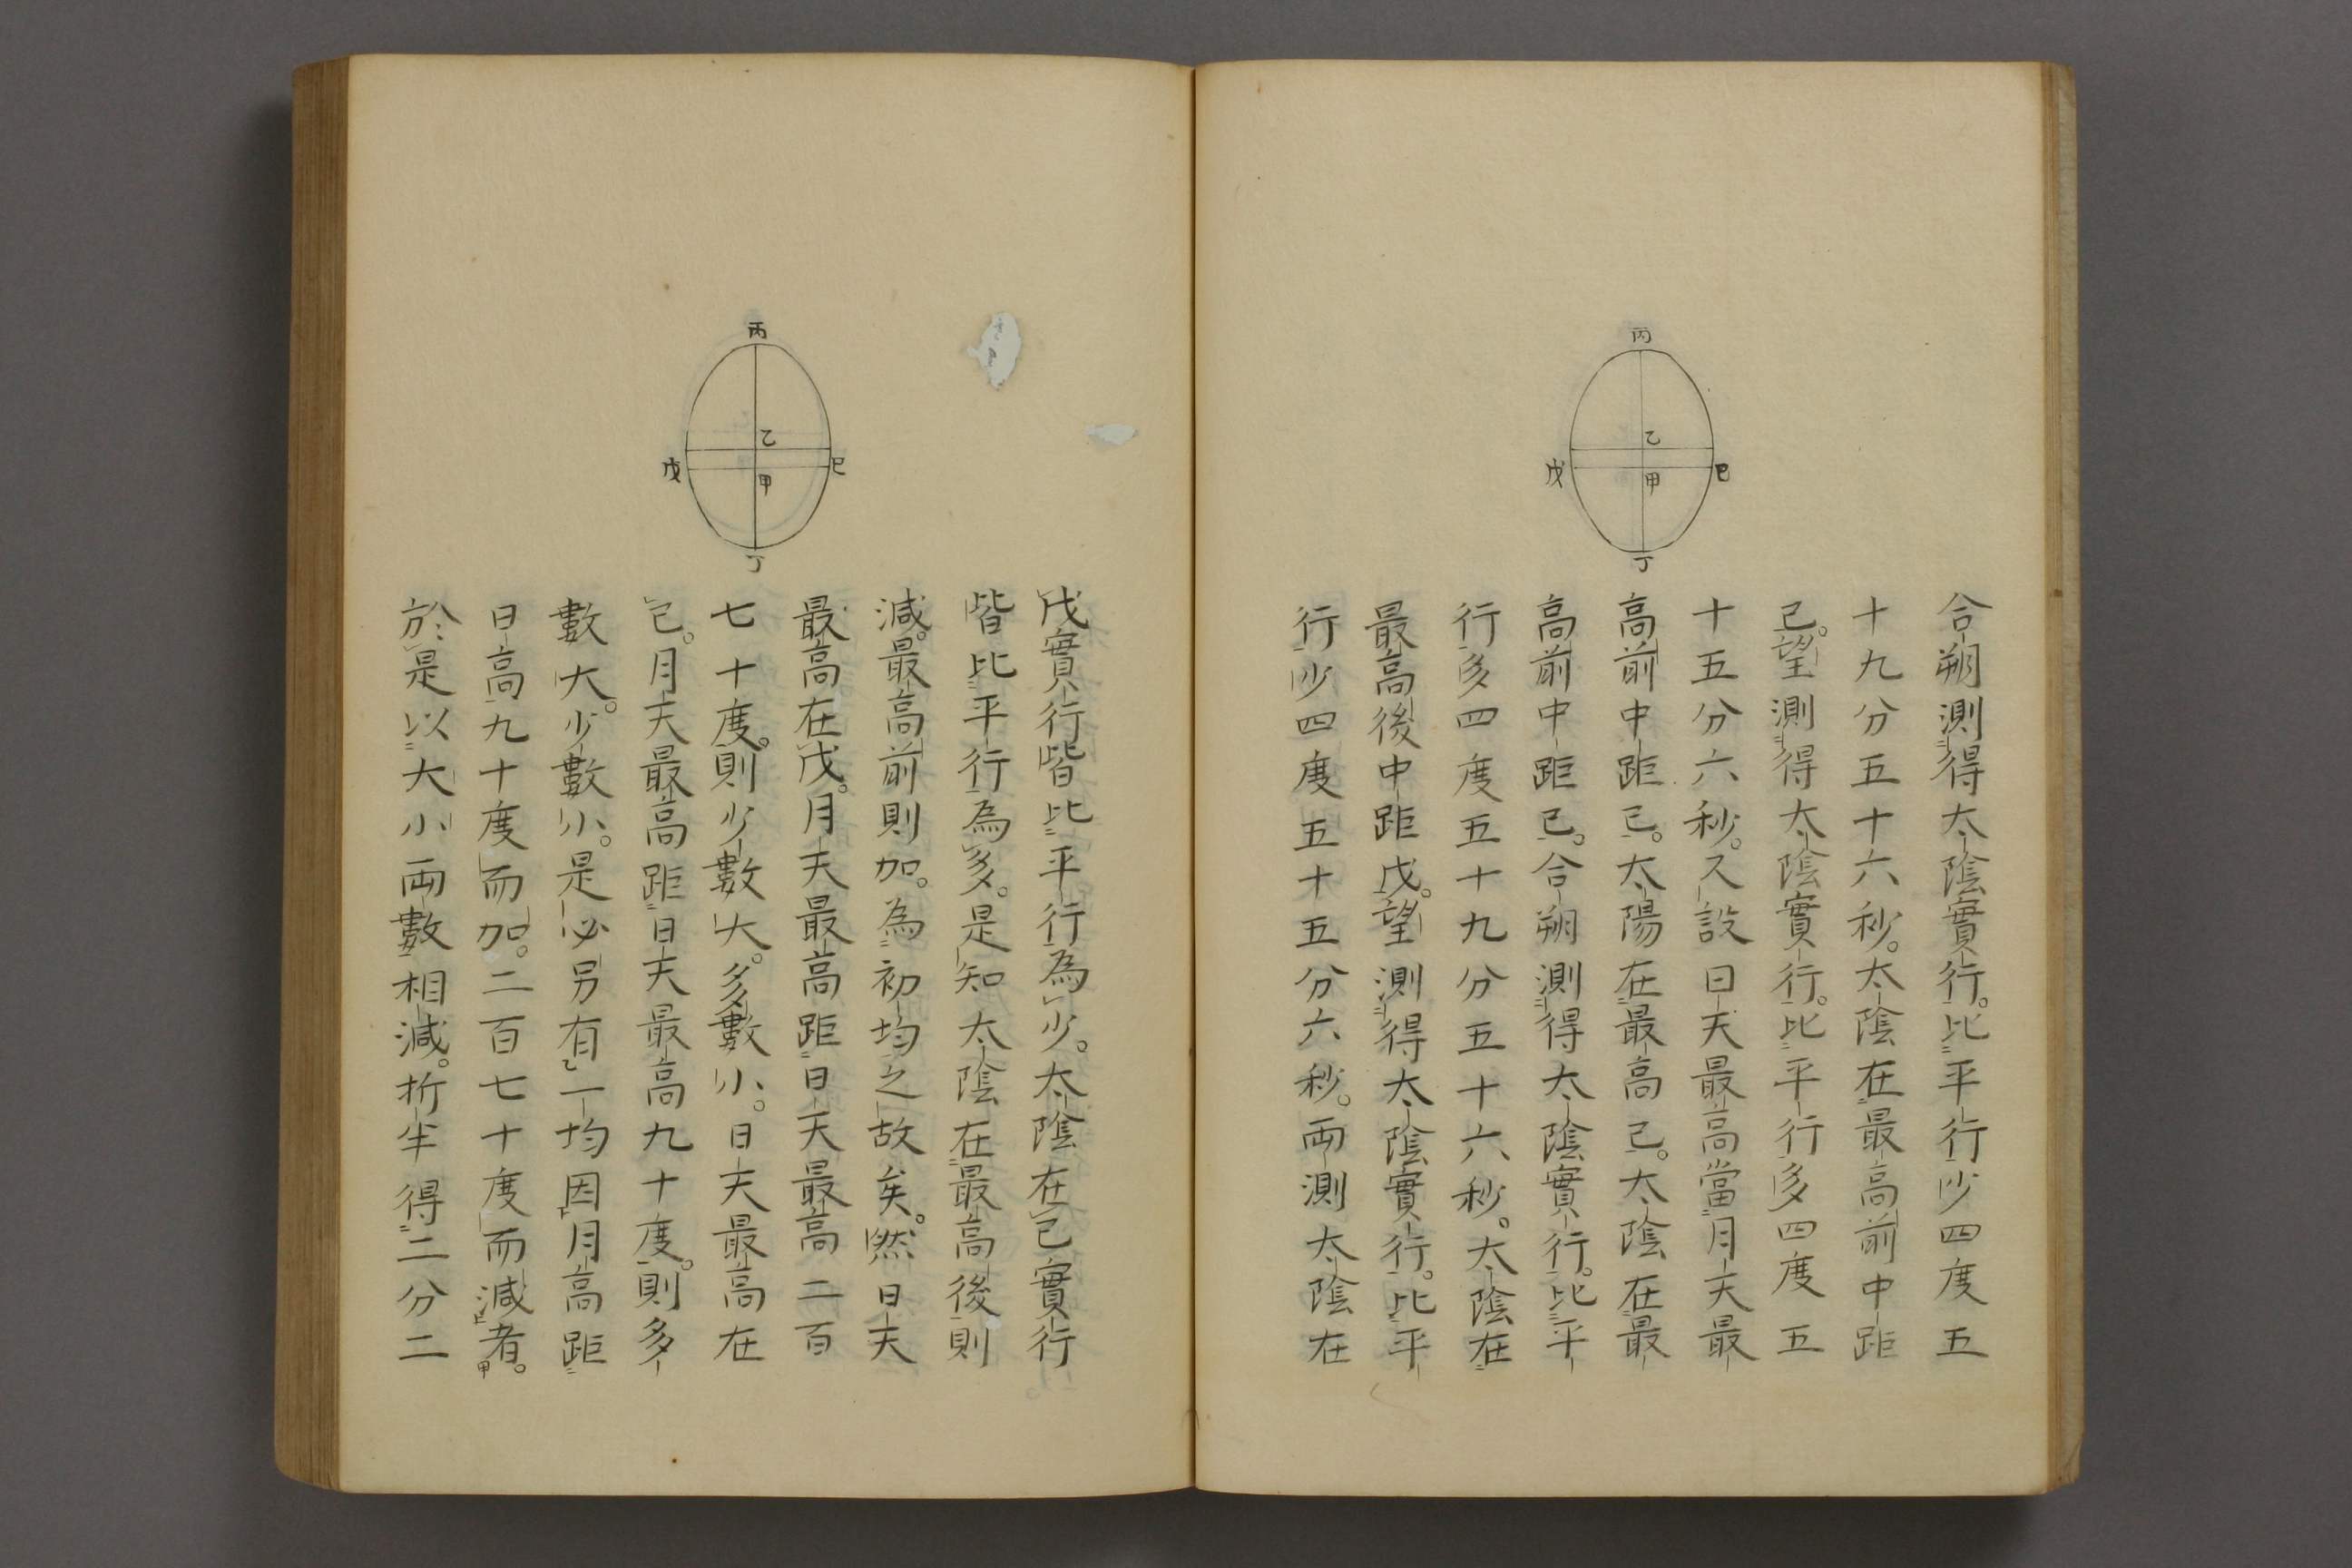 丙
乙
甲
戊
巳
丁
合朔測得太陰實行。比平行少四度五
十九分五十六秒。太陰在最高前中距
己。望測得太陰實行。比平行多四度五
十五分六秒。又設日天最高當月天最
高前中距己。太陽在最高己。太陰在最
高前中距己。合朔測得太陰實行。比平
行多四度五十九分五十六秒。太陰在
最高後中距戊。望測得太陰實行。比平
行少四度五十五分六秒。兩測太陰在
丙
乙
甲
戊
巳
丁
戊實行皆比平行為少。太陰在己實行
皆比平行為多。是知太陰在最高後則
減。最高前則加。為初均之故矣。然日天
最高在戊。月天最高距日天最高二百
七十度。則少數大。多數小。日天最高在
己。月天最高距日天最高九十度。則多
數大。少數小。是必另有一均因月高距
日高九十度而加。二百七十度而減者。
於是以大小兩數相減。折半得二分二